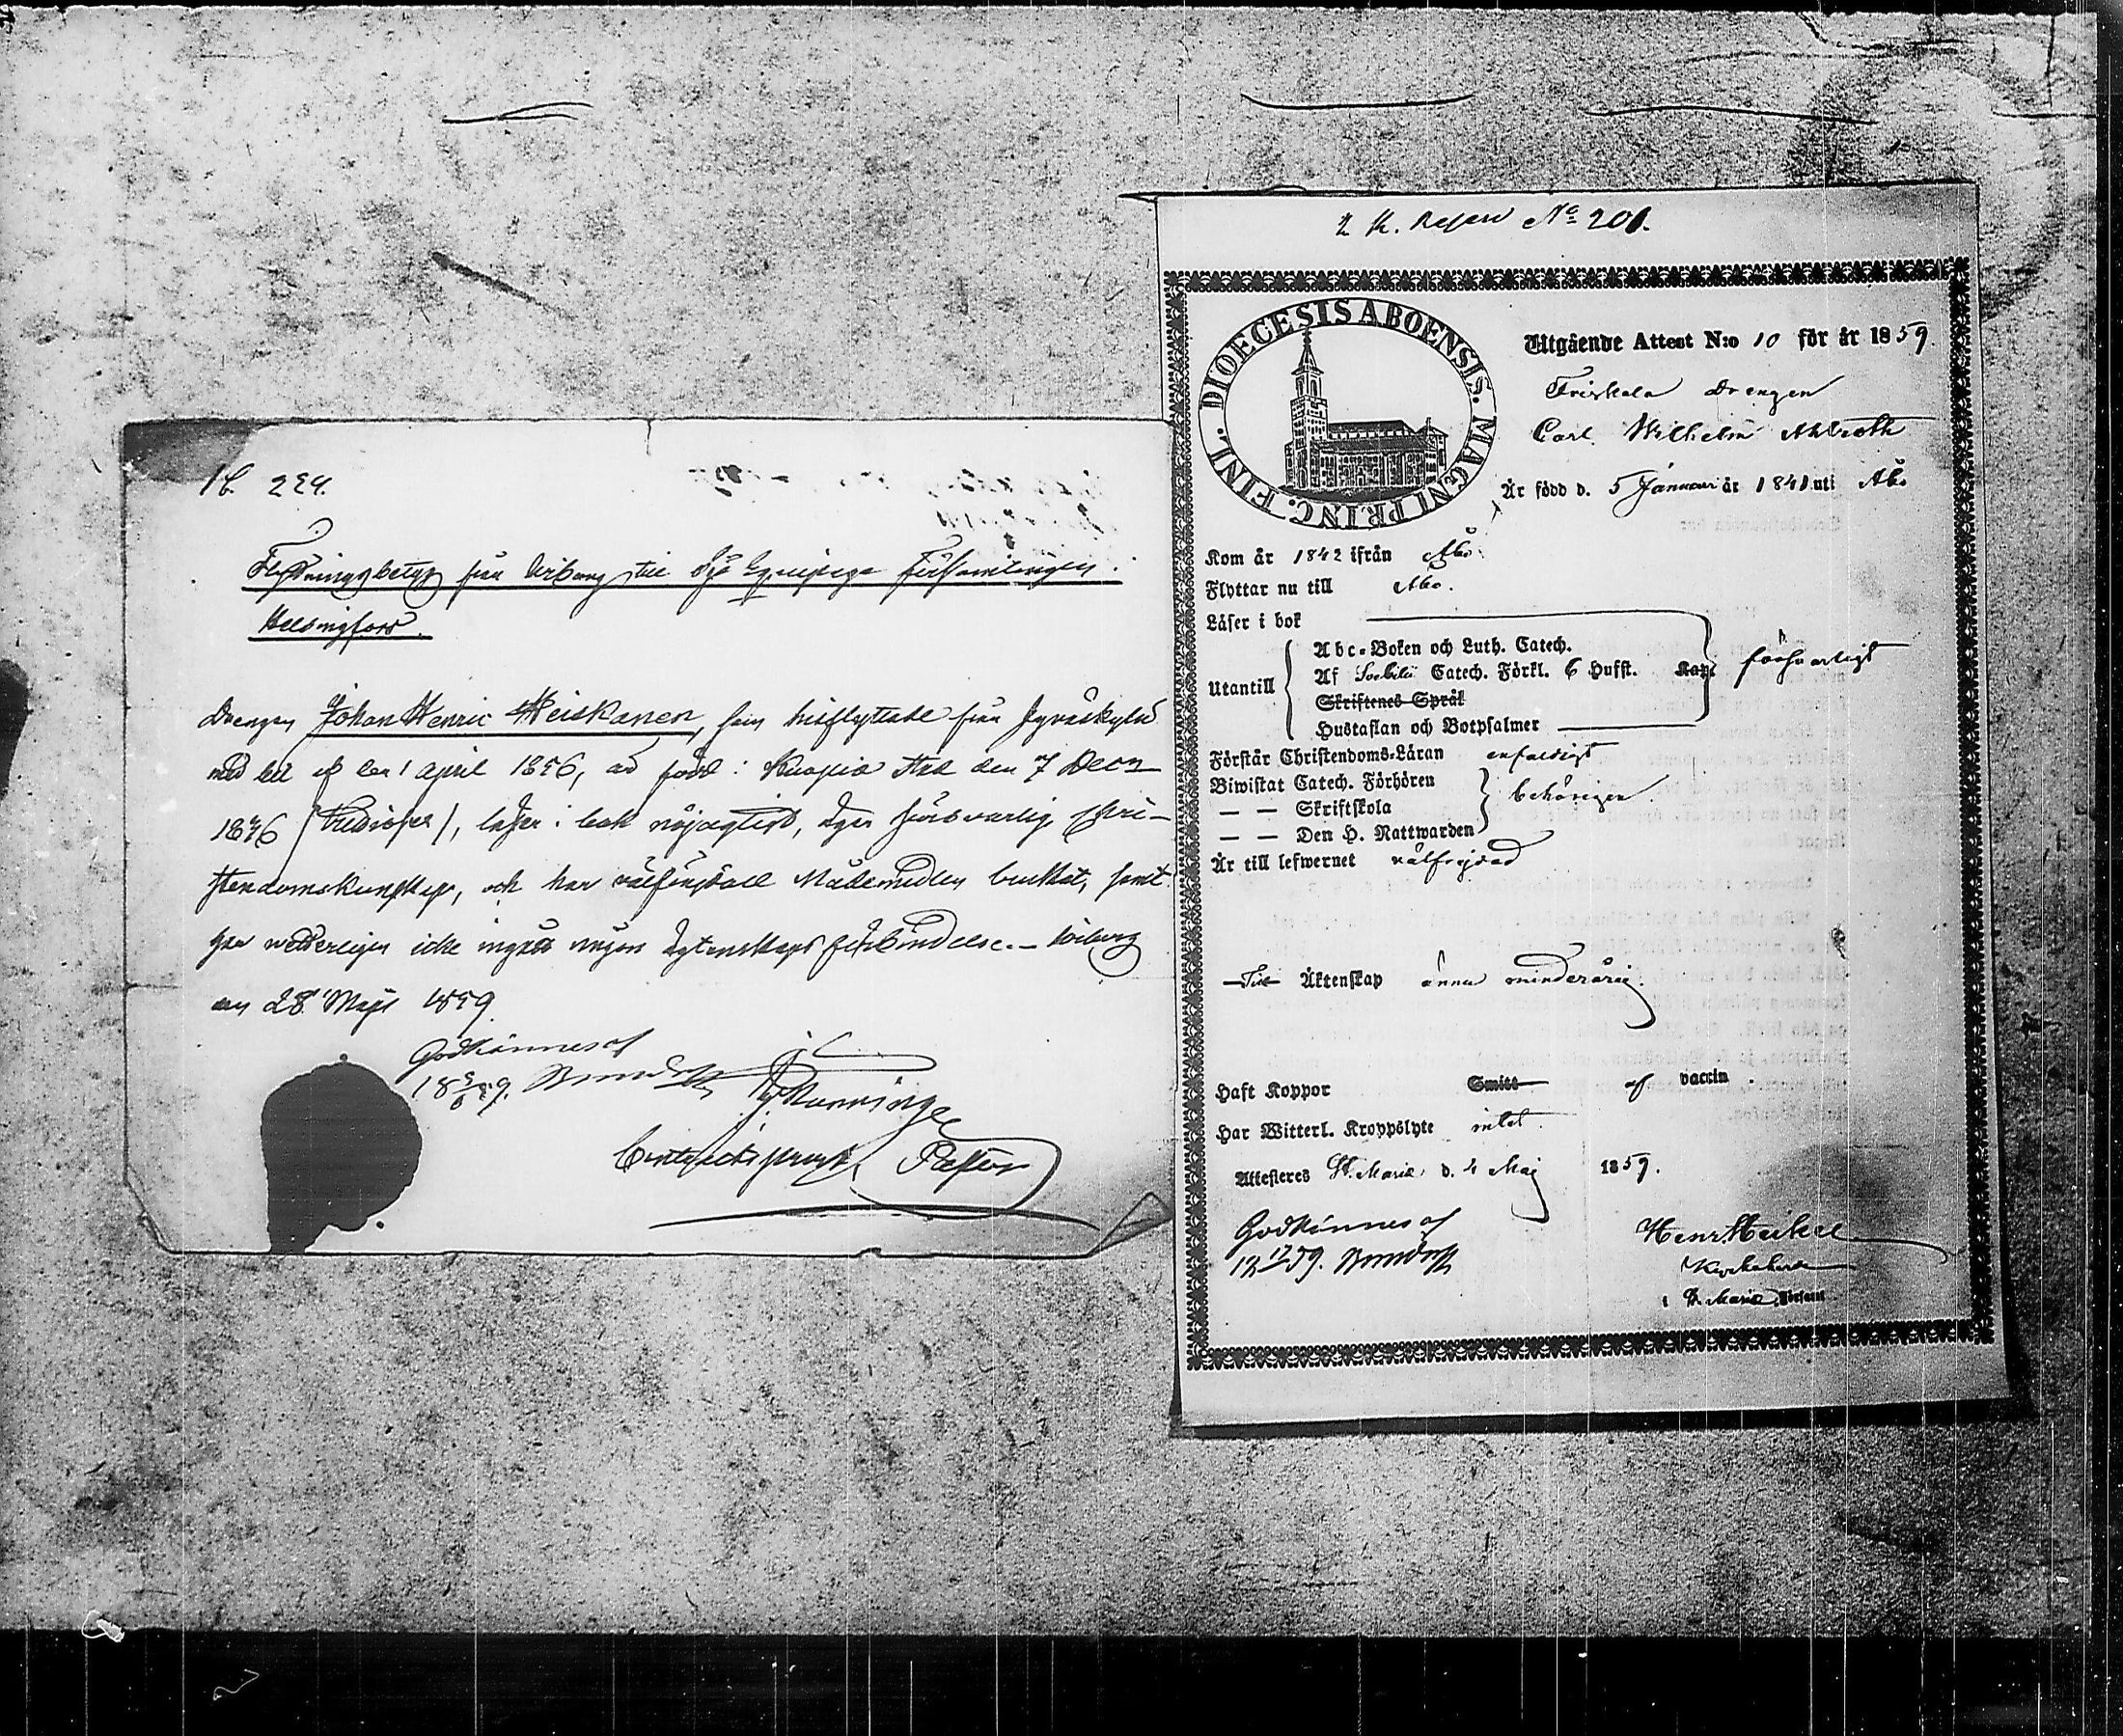 224.
Flyttningsbetyg från Wiborg till Sjö Equipage Församlingen i
Helsingfors.
Drengen Johan Henric Heiskanen, som hitflyttade från Jyväskylä
med bet. af den 1 April 1856, är född i Kuopio stad den 7 Decem
1836, läser i bok nöjagtigt, äger försvarlig Chri-
stendomskunskap, och har välförhållit Nådemedlen brukat, samt
har vetterligen icke ingått någon ägtenskaps förbindelse. – Wiborg
den 28 Maji 1859.
Godkännes af
Contractsprost, Pastor
2 K. Reserv No 201.
DIOECESIS ABOENSIS. MAGNI PRINC. FINL.
Utgående Attest N:o 10 för år 1859.
Friskala Drengen
Carl Wilhelm Ahlroth
Är född d. 5 Januari år 1841 uti Åbo
Kom år 1842 ifrån Åbo.
Flyttar nu till Åbo.
Läser i bok
Utantill
Abc-Boken och Luth. Catech.
Af Svebilii Catech. Förkl. 6 Hufst. Kap.
försvarligt
Skriftenes Språk
Hustaflan och Botpsalmer
Förstår Christendoms-Läran enfaldigt
Biwistat Catech. Förhören
— — Skriftskola
behörigen.
— — Den H. Nattwarden
Är till lefwernet välfrejdad
Till Äktenskap ännu minderårig.
Haft Koppor Smitt af vaccin.
Har Witterl. Kroppslyte intet.
Attesteras St. Marie d. 4 Maj 1859.
Godkännes af
Henr. Heikel
Kyrkoherde
i St. Marie Församl.